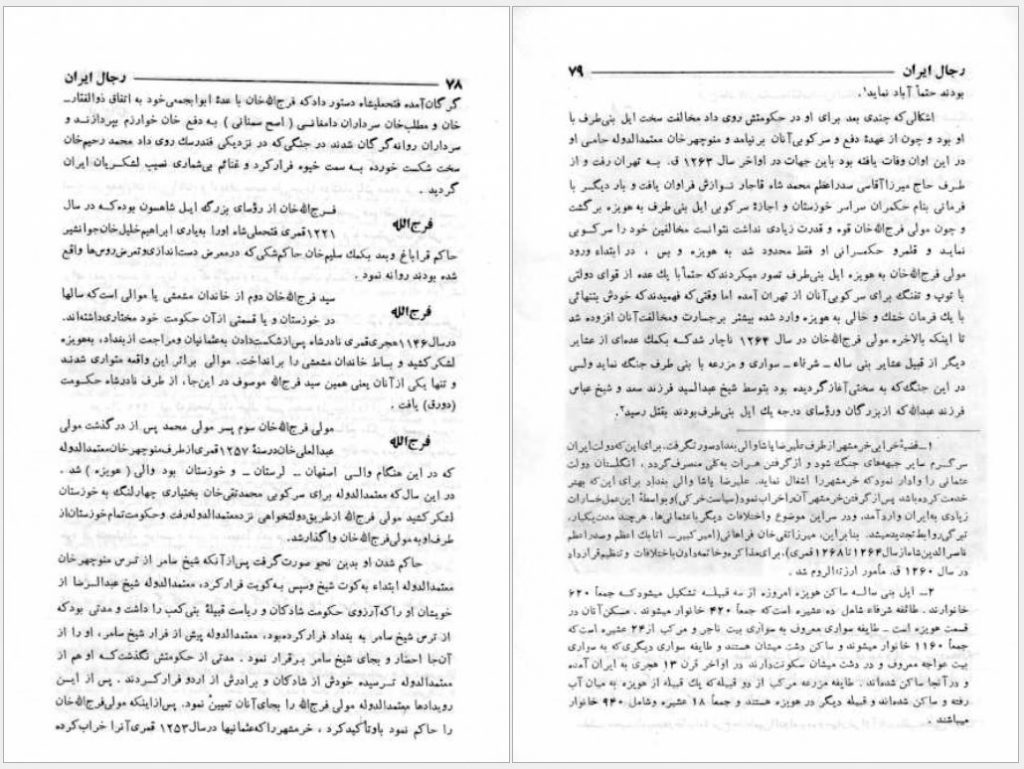 ۷۸ رجال ایران
گرگان‌آمده فتحعلیشاه دستور داد که فرج‌الله‌خان با عدهٔ ابوابجمعی خود به اتفاق ذوالفقار ـ
خان و مطلب‌خان سرداران دامغانی ( اصح سمنانی ) به دفع خان خوارزم بپردازند و
سرداران روانه گرگان شدند در جنگی که در نزدیکی فندرسك روی داد محمد رحیم‌خان
سخت شکست خورده به سمت خیوه فرار کرد و غنائم بی‌شماری نصیب لشکریان ایران
گردید .
فرج‌الله
فرج‌الله‌خان از رؤسای بزرگ ایل شاهسون بوده که در سال
۱۲۲۱ قمری فتحعلی‌شاه اورا به‌یاری ابراهیم خلیل‌خان جوانشیر
حاکم قراباغ و بعد بکمك سلیم‌خان حاکم شکی که در معرض دست‌اندازی و تعرض روس‌ها واقع
شده بودند روانه نمود .
فرج‌الله
سید فرج‌الله‌خان دوم از خاندان مشعشی یا موالی است که سالها
در خوزستان و یا قسمتی از آن حکومت خود مختاری داشته‌اند.
در سال ۱۱۴۶ هجری قمری نادرشاه پس از شکست دادن به عثمانیان و مراجعت از بغداد، به‌هویزه
لشکر کشید و بساط خاندان مشعشی را برانداخت. موالی براثر این واقعه متواری شدند
و تنها یکی از آنان یعنی همین سید فرج‌الله موصوف در این‌جا، از طرف نادرشاه حکومت
(دورق) یافت .
فرج‌الله
مولی فرج‌الله‌خان سوم پسر مولی محمد پس از درگذشت مولی
عبدالعلی‌خان در سنهٔ ۱۲۵۷ قمری از طرف منوچهر خان معتمدالدوله
که در این هنگام والی اصفهان ـ لرستان ـ و خوزستان بود والی ( هویزه ) شد .
در این سال که معتمدالدوله برای سرکوبی محمدتقی‌خان بختیاری چهارلنگ به خوزستان
لشکر کشید مولی فرج‌الله از طریق دولتخواهی نزد معتمدالدوله رفت و حکومت تمام خوزستان از
طرف او به مولی فرج‌الله‌خان واگذار شد.
حاکم شدن او بدین نحو صورت گرفت پس از آنکه شیخ سامر از ترس منوچهرخان
معتمدالدوله ابتداء به‌کوت شیخ و سپس به‌کویت فرار کرد، معتمدالدوله شیخ عبدالرضا از
خویشان او را که آرزوی حکومت شادکان و ریاست قبیلهٔ بنی‌کعب را داشت و مدتی بود که
از ترس شیخ سامر به بغداد فرار کرده بود، معتمدالدوله پیش از فرار شیخ سامر، او را از
آن‌جا احضار و بجای شیخ سامر برقرار نمود . مدتی از حکومتش نگذشت که او هم از
معتمدالدوله ترسیده خودش از شادکان و برادرش از اردو فرار کردند . پس از ایـن
رویدادها معتمدالدوله مولی فرج‌الله را بجای آنان تعیین نمود. پس از اینکه مولی فرج‌الله‌خان
را حاکم نمود باو تأکید کرد ، خرمشهر را که عثمانیها در سال ۱۲۵۳ قمری آنرا خراب کرده
رجال ایران ۷۹
بودند حتماً آباد نماید۱.
اشکالی که چندی بعد برای او در حکومتش روی داد مخالفت سخت ایل بنی‌طرف با
او بود و چون از عهدهٔ دفع و سرکوبی آنان برنیامد و منوچهر خان معتمدالدوله حامی او
در این اوان وفات یافته بود باین جهات در اواخر سال ۱۲۶۳ ق. به تهران رفت و از
طرف حاج میرزا آقاسی صدراعظم محمد شاه قاجار نوازش فراوان یافت و بار دیگر با
فرمانی بنام حکمران سراسر خوزستان و اجازهٔ سرکوبی ایل بنی طرف به هویزه برگشت
و چون مولی فرج‌الله‌خان قوه و قدرت زیادی نداشت نتوانست مخالفین خود را سرکوبی
نماید و قلمرو حکمرانی او فقط محدود شد به هویزه و بس ، در ابتداء ورود
مولی فرج‌الله‌خان به هویزه ایل بنی‌طرف تصور میکردند که حتماً با یك عده از قوای دولتی
با توپ و تفنگ برای سرکوبی آنان از تهران آمده اما وقتی که فهمیدند که خودش بتنهائی
با یك فرمان خشك و خالی به هویزه وارد شده بیشتر برجسارت و مخالفت آنان افزوده شد
تا اینکه بالاخره مولی فرج‌الله‌خان در سال ۱۲۶۴ ناچار شد که بکمك عده‌ای از عشایر
دیگر از قبیل عشایر بنی ساله ـ شرفاء ـ سواری و مزرعه با بنی طرف جنگ نماید ولی
در این جنگ که به سختی آغاز گردیده بود بتوسط شیخ عبدالسید فرزند سعد و شیخ عباس
فرزند عبدالله که از بزرگان ورؤسای درجه یك ایل بنی‌طرف بودند بقتل رسید۲.
۱ ـ قضیهٔ خرابی خرمشهر از طرف علیرضا پاشا والی بغداد صورت گرفت. برای این که دولت ایران
سرگرم سایر جبهه‌های جنگ شود و از گرفتن هرات به‌کلی منصرف گردد ، انگلستان دولت
عثمانی را وادار نمود که خرمشهر را اشغال نماید. علیرضا پاشا والی بغداد برای این که بهتر
خدمت کرده باشد پس از گرفتن خرمشهر آن را خراب نمود (سیاست خرکی) و بواسطهٔ این عمل خسارات
زیادی به ایران وارد آمد، و در سر این موضوع و اختلافات دیگر با عثمانی‌ها، هر چند مدت یکبار،
تیرگی روابط تجدید میشد. بنابراین، میرزا تقی خان فراهانی (امیر کبیر ـ اتابك اعظم وصدراعظم
ناصرالدین شاه از سال ۱۲۶۴ تا ۱۲۶۸ قمری)، برای مذاکره و خاتمه دادن باختلافات و تنظیم قرارداد
در سال ۱۲۶۰ ق. مأمور ارزنة‌الروم شد .
۲ ـ ایل بنی ساله ساکن هویزه امروزه از سه قبیله تشکیل میشود که جمعاً ۶۲۰
خانوارند . طائفه شرفاء شامل ده عشیره است که جمعاً ۴۲۰ خانوار میشوند . مسکن آنان در
قسمت هویزه است ـ طایفه سواری معروف به سواری بیت تاجر و مرکب از ۲۴ عشیره است که
جمعاً ۱۱۶۰ خانوار میشوند و ساکن دشت میشان هستند و طایفه سواری دیگری که به سواری
بیت عواجه معروف و در دشت میشان سکونت دارند در اواخر قرن ۱۳ هجری به ایران آمده
و در آنجا ساکن شده‌اند . طایفه مزرعه مرکب از دو قبیله که یك قبیله از هویزه به میان آب
رفته و ساکن شده‌اند و قبیله دیگر در هویزه هستند و جمعاً ۱۸ عشیره و شامل ۹۴۰ خانوار
میباشند .